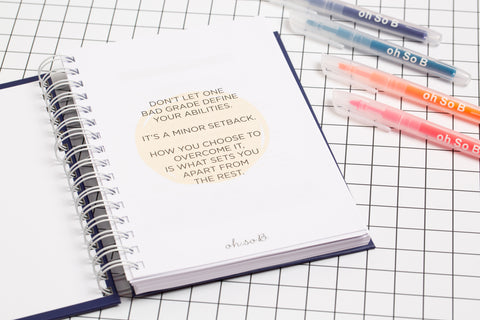 DON'T LET ONE
BAD GRADE DEFINE
YOUR ABILITIES.
IT'S A MINOR SETBACK.
HOW YOU CHOOSE TO
OVERCOME IT,
IS WHAT SETS YOU
APART FROM
THE REST.
oh so B
oh So B
oh So B
oh So B
oh So B